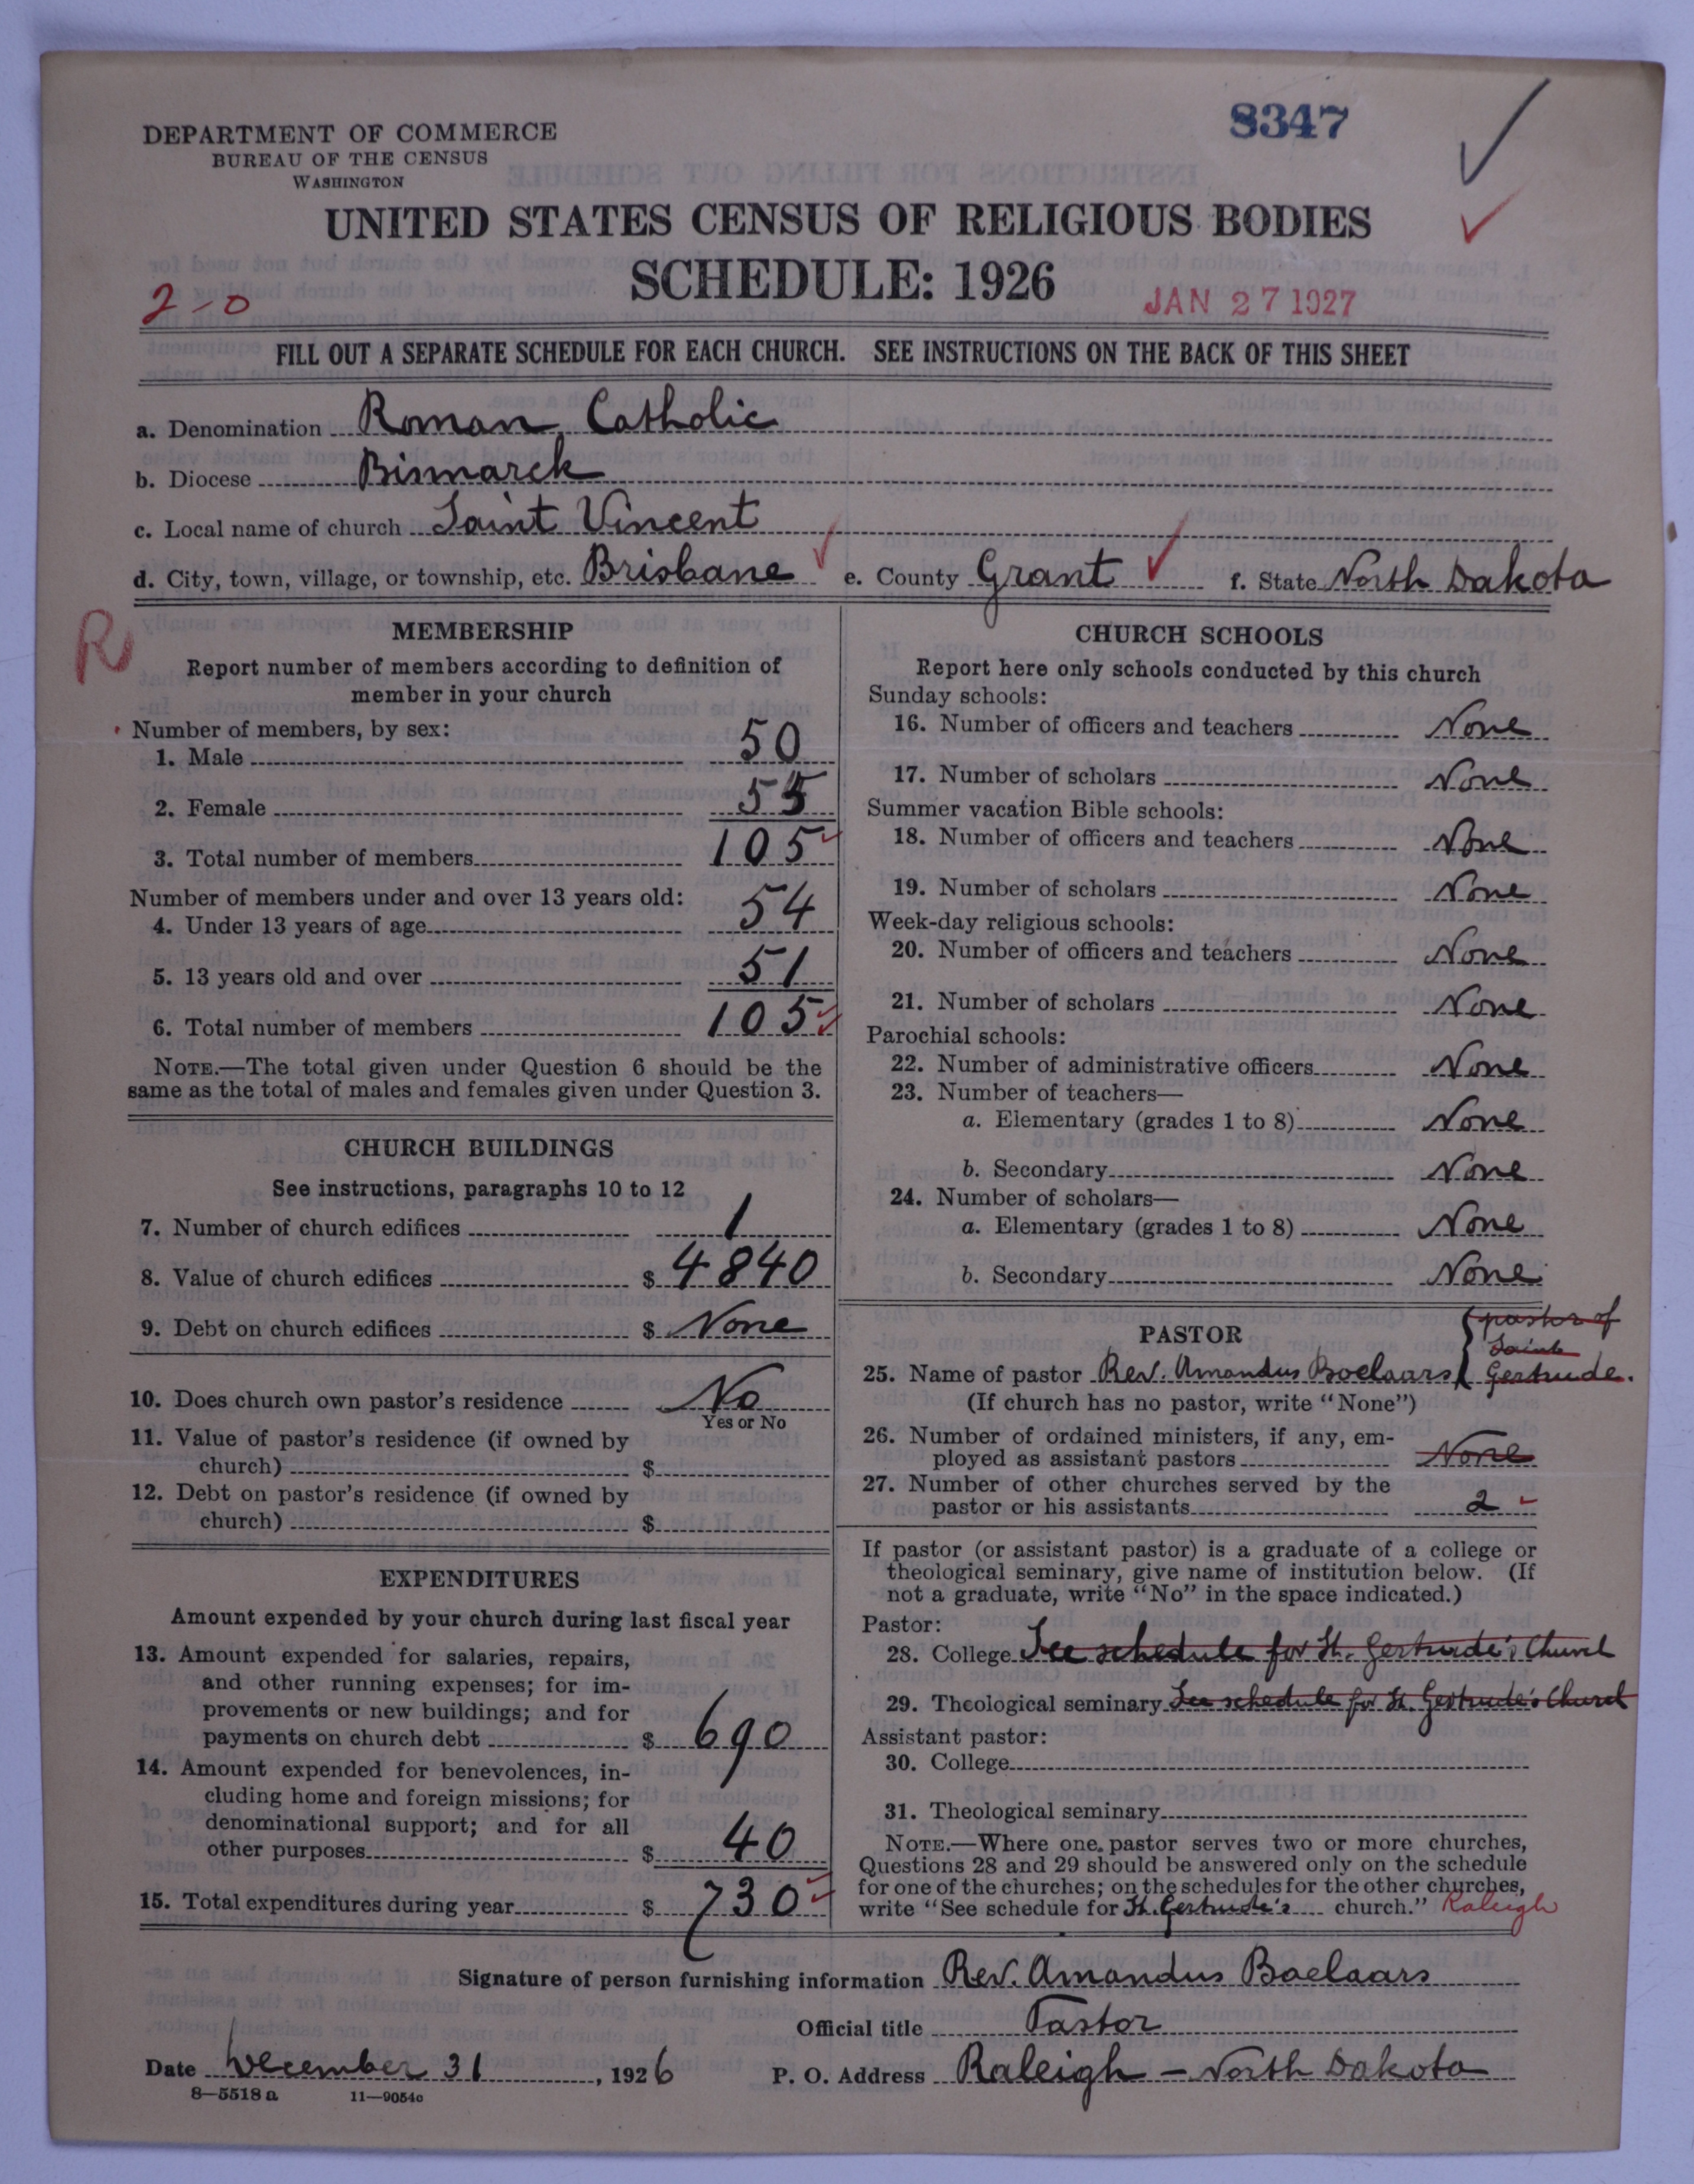 8347
DEPARTMENT OF COMMERCE
BUREAU OF THE CENSUS
WASHINGTON
UNITED STATES CENSUS OF RELIGIOUS BODIES
SCHEDULE: 1926
2-0
JAN 27 1927
FILL OUT A SEPARATE SCHEDULE FOR EACH CHURCH. SEE INSTRUCTIONS ON THE BACK OF THIS SHEET
a. Denomination Roman Catholic
b. Diocese Bismarck
c. Local name of church Saint Vincent
d. City, town, village, or township, etc. Brisbane e. County Grant f. State North Dakota
R
MEMBERSHIP
Report number of members according to definition of
member in your church
Number of members, by sex:
1. Male 50
2. Female 55
3. Total number of members 105
Number of members under and over 13 years old:
4. Under 13 years of age 54
5. 13 years old and over 51
6. Total number of members 105
NOTE.—The total given under Question 6 should be the
same as the total of males and females given under Question 3.
CHURCH BUILDINGS
See instructions, paragraphs 10 to 12
7. Number of church edifices 1
8. Value of church edifices $ 4840
9. Debt on church edifices $ None
10. Does church own pastor's residence No
Yes or No
11. Value of pastor's residence (if owned by
church) $
12. Debt on pastor's residence (if owned by
church) $
EXPENDITURES
Amount expended by your church during last fiscal year
13. Amount expended for salaries, repairs,
and other running expenses; for im-
provements or new buildings; and for
payments on church debt $ 690
14. Amount expended for benevolences, in-
cluding home and foreign missions; for
denominational support; and for all
other purposes $ 40
15. Total expenditures during year $ 730
CHURCH SCHOOLS
Report here only schools conducted by this church
Sunday schools:
16. Number of officers and teachers None
17. Number of scholars None
Summer vacation Bible schools:
18. Number of officers and teachers None
19. Number of scholars None
Week-day religious schools:
20. Number of officers and teachers None
21. Number of scholars None
Parochial schools:
22. Number of administrative officers None
23. Number of teachers—
a. Elementary (grades 1 to 8) None
b. Secondary None
24. Number of scholars—
a. Elementary (grades 1 to 8) None
b. Secondary None
PASTOR
pastor of
Saint
25. Name of pastor Rev. Amandus Boelaars Gertrude.
(If church has no pastor, write "None")
26. Number of ordained ministers, if any, em-
ployed as assistant pastors None
27. Number of other churches served by the
pastor or his assistants 2
If pastor (or assistant pastor) is a graduate of a college or
theological seminary, give name of institution below. (If
not a graduate, write "No" in the space indicated.)
Pastor:
28. College See schedule for St. Gertrude's Church
29. Theological seminary See schedule for St. Gertrude's Church
Assistant pastor:
30. College
31. Theological seminary
NOTE.—Where one pastor serves two or more churches,
Questions 28 and 29 should be answered only on the schedule
for one of the churches; on the schedules for the other churches,
write "See schedule for St. Gertrude's church." Raleigh
Signature of person furnishing information Rev. Amandus Boelaars
Official title Pastor
Date December 31, 1926 P. O. Address Raleigh – North Dakota
8—5518 a 11—9054c